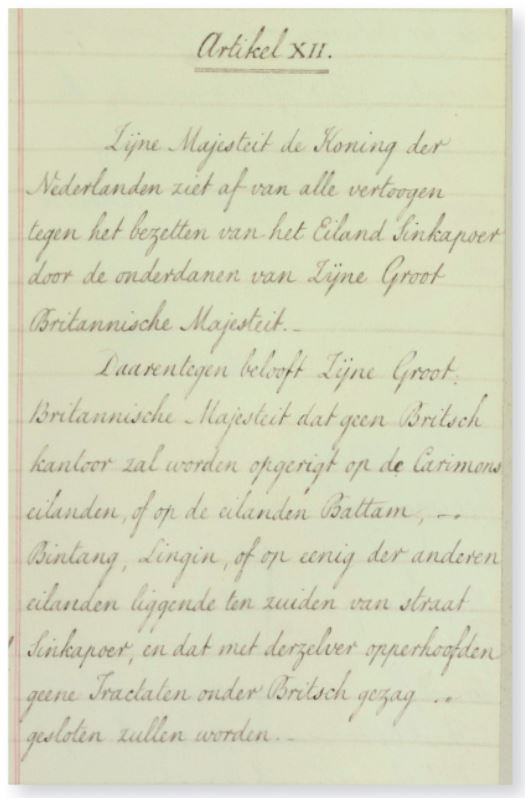 Artikel XII.
Zijne Majesteit de Koning der
Nederlanden ziet af van alle vertoogen
tegen het bezetten van het Eiland Sinkapoer
door de onderdanen van Zijne Groot
Britannische Majesteit._
Daarentegen belooft Zijne Groot.
Britannische Majesteit dat geen Britsch
kantoor zal worden opgerigt op de Carimons
eilanden, of op de eilanden Battam, _.
Bintang, Lingin, of op eenig der anderen
eilanden liggende ten zuiden van straat
Sinkapoer, en dat met derzelver opperhoofden
geene Tractaten onder Britsch gezag ..
gesloten zullen worden._